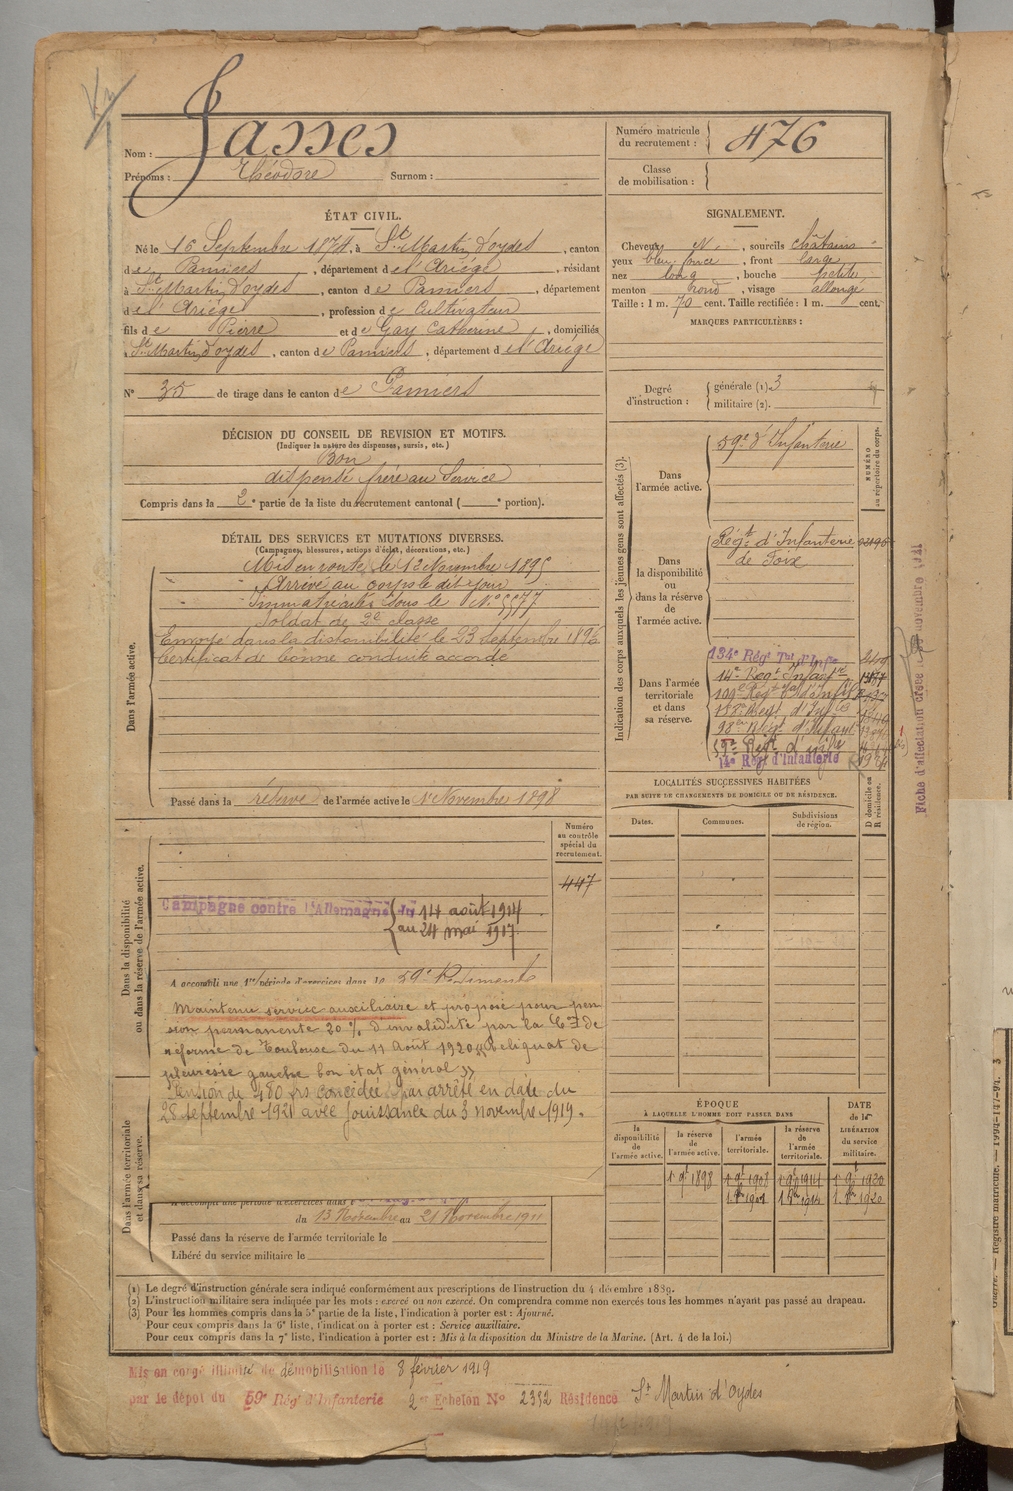 Nom : Jasses
Prénoms : Théodore Surnom :
ÉTAT CIVIL.
Né le 16 Septembre 1874, à St Martin d'oydes, canton
de Pamiers, département de l'Ariége, résidant
à St Martin d'oydes, canton de Pamiers, département
de l'Ariége, profession de Cultivateur
fils de Pierre et de Gay Catherine, domiciliés
à St Martin d'oydes, canton de Pamiers, département de l'Ariége
N° 35 de tirage dans le canton de Pamiers
DÉCISION DU CONSEIL DE REVISION ET MOTIFS.
(Indiquer la nature des dispenses, sursis, etc.)
Bon
dispensé frère au Service
Compris dans la 2e partie de la liste du recrutement cantonal ( e portion).
DÉTAIL DES SERVICES ET MUTATIONS DIVERSES.
(Campagnes, blessures, actions d'éclat, décorations, etc.)
Dans l'armée active.
Mis en route le 12 Novembre 1895
Arrivé au corps le dit jour
Immatriculé sous le N°
Soldat de 2e classe
Envoyé dans la disponibilité le 23 Septembre 1896
Certificat de bonne conduite accordé
Passé dans la réserve de l'armée active le 1r Novembre 1898
Dans la disponibilité
ou dans la réserve de l'armée active.
Numéro
au contrôle
spécial du
recrutement.
447
Campagne contre l'Allemagne du 14 août 1914
au 24 mai 1917.
A accompli une 1re période d'exercices dans le 59e Régiment
Maintenu service auxiliaire et proposé pour pen
sion permanente 20 % d'invalidité par la C.I. de
réforme de Toulouse du 11 Août 1920 « Reliquat de
pleurésie gauche bon etat général »
Pension de 480 frs concédée par arrêté en date du
28 septembre 1921 avec jouissance du 3 novembre 1919.
Dans l'armée territoriale
et dans sa réserve.
A accompli une période d'exercices dans
du 13 Novembre au 21 Novembre 1911
Passé dans la réserve de l'armée territoriale le
Libéré du service militaire le
Numéro matricule
du recrutement : 476
Classe
de mobilisation :
SIGNALEMENT.
Cheveux N., sourcils châtains
yeux bleu foncé, front large
nez long, bouche petite
menton rond, visage allongé
Taille : 1 m. 70 cent. Taille rectifiée : 1 m. cent.
MARQUES PARTICULIÈRES :
Degré
d'instruction :
générale (1). 3
militaire (2).
Indication des corps auxquels les jeunes gens sont affectés (3).
NUMÉRO
au répertoire du corps.
Dans
l'armée active.
59e d'Infanterie
Dans
la disponibilité
ou
dans la réserve
de
l'armée active.
Régt d'Infanterie
de Foix
Dans l'armée
territoriale
et dans
sa réserve.
134e Régt Tal d'Infie
14e Régt Infanie
109e Régt
98e Régt d'Infant
59e Régt d'infie
14e Rég. d'Infanterie
Fiche d'affectation créée novembre 191
LOCALITÉS SUCCESSIVES HABITÉES
PAR SUITE DE CHANGEMENTS DE DOMICILE OU DE RÉSIDENCE.
Dates. Communes. Subdivisions
de région.
D domicile ou
R résidence.
ÉPOQUE
À LAQUELLE L'HOMME DOIT PASSER DANS
DATE
de la
LIBÉRATION
du service
militaire.
la
disponibilité
de
l'armée active.
la réserve
de
l'armée active.
l'armée
territoriale.
la réserve
de
l'armée
territoriale.
1r 9bre 1898 1r 9bre 1908 1r 9bre 1914 1r 9bre 1920
(1) Le degré d'instruction générale sera indiqué conformément aux prescriptions de l'instruction du 4 décembre 1889.
(2) L'instruction militaire sera indiquée par les mots : exercé ou non exercé. On comprendra comme non exercés tous les hommes n'ayant pas passé au drapeau.
(3) Pour les hommes compris dans la 5e partie de la liste, l'indication à porter est : Ajourné.
Pour ceux compris dans la 6e liste, l'indication à porter est : Service auxiliaire.
Pour ceux compris dans la 7e liste, l'indication à porter est : Mis à la disposition du Ministre de la Marine. (Art. 4 de la loi.)
Mis en congé illimité de démobilisation le 8 février 1919
par le dépôt du 59e Rég' d'Infanterie 2e Echelon N° 2352 Résidence St Martin d'Oydes
Registre matricule. — 1994-147-94. 3